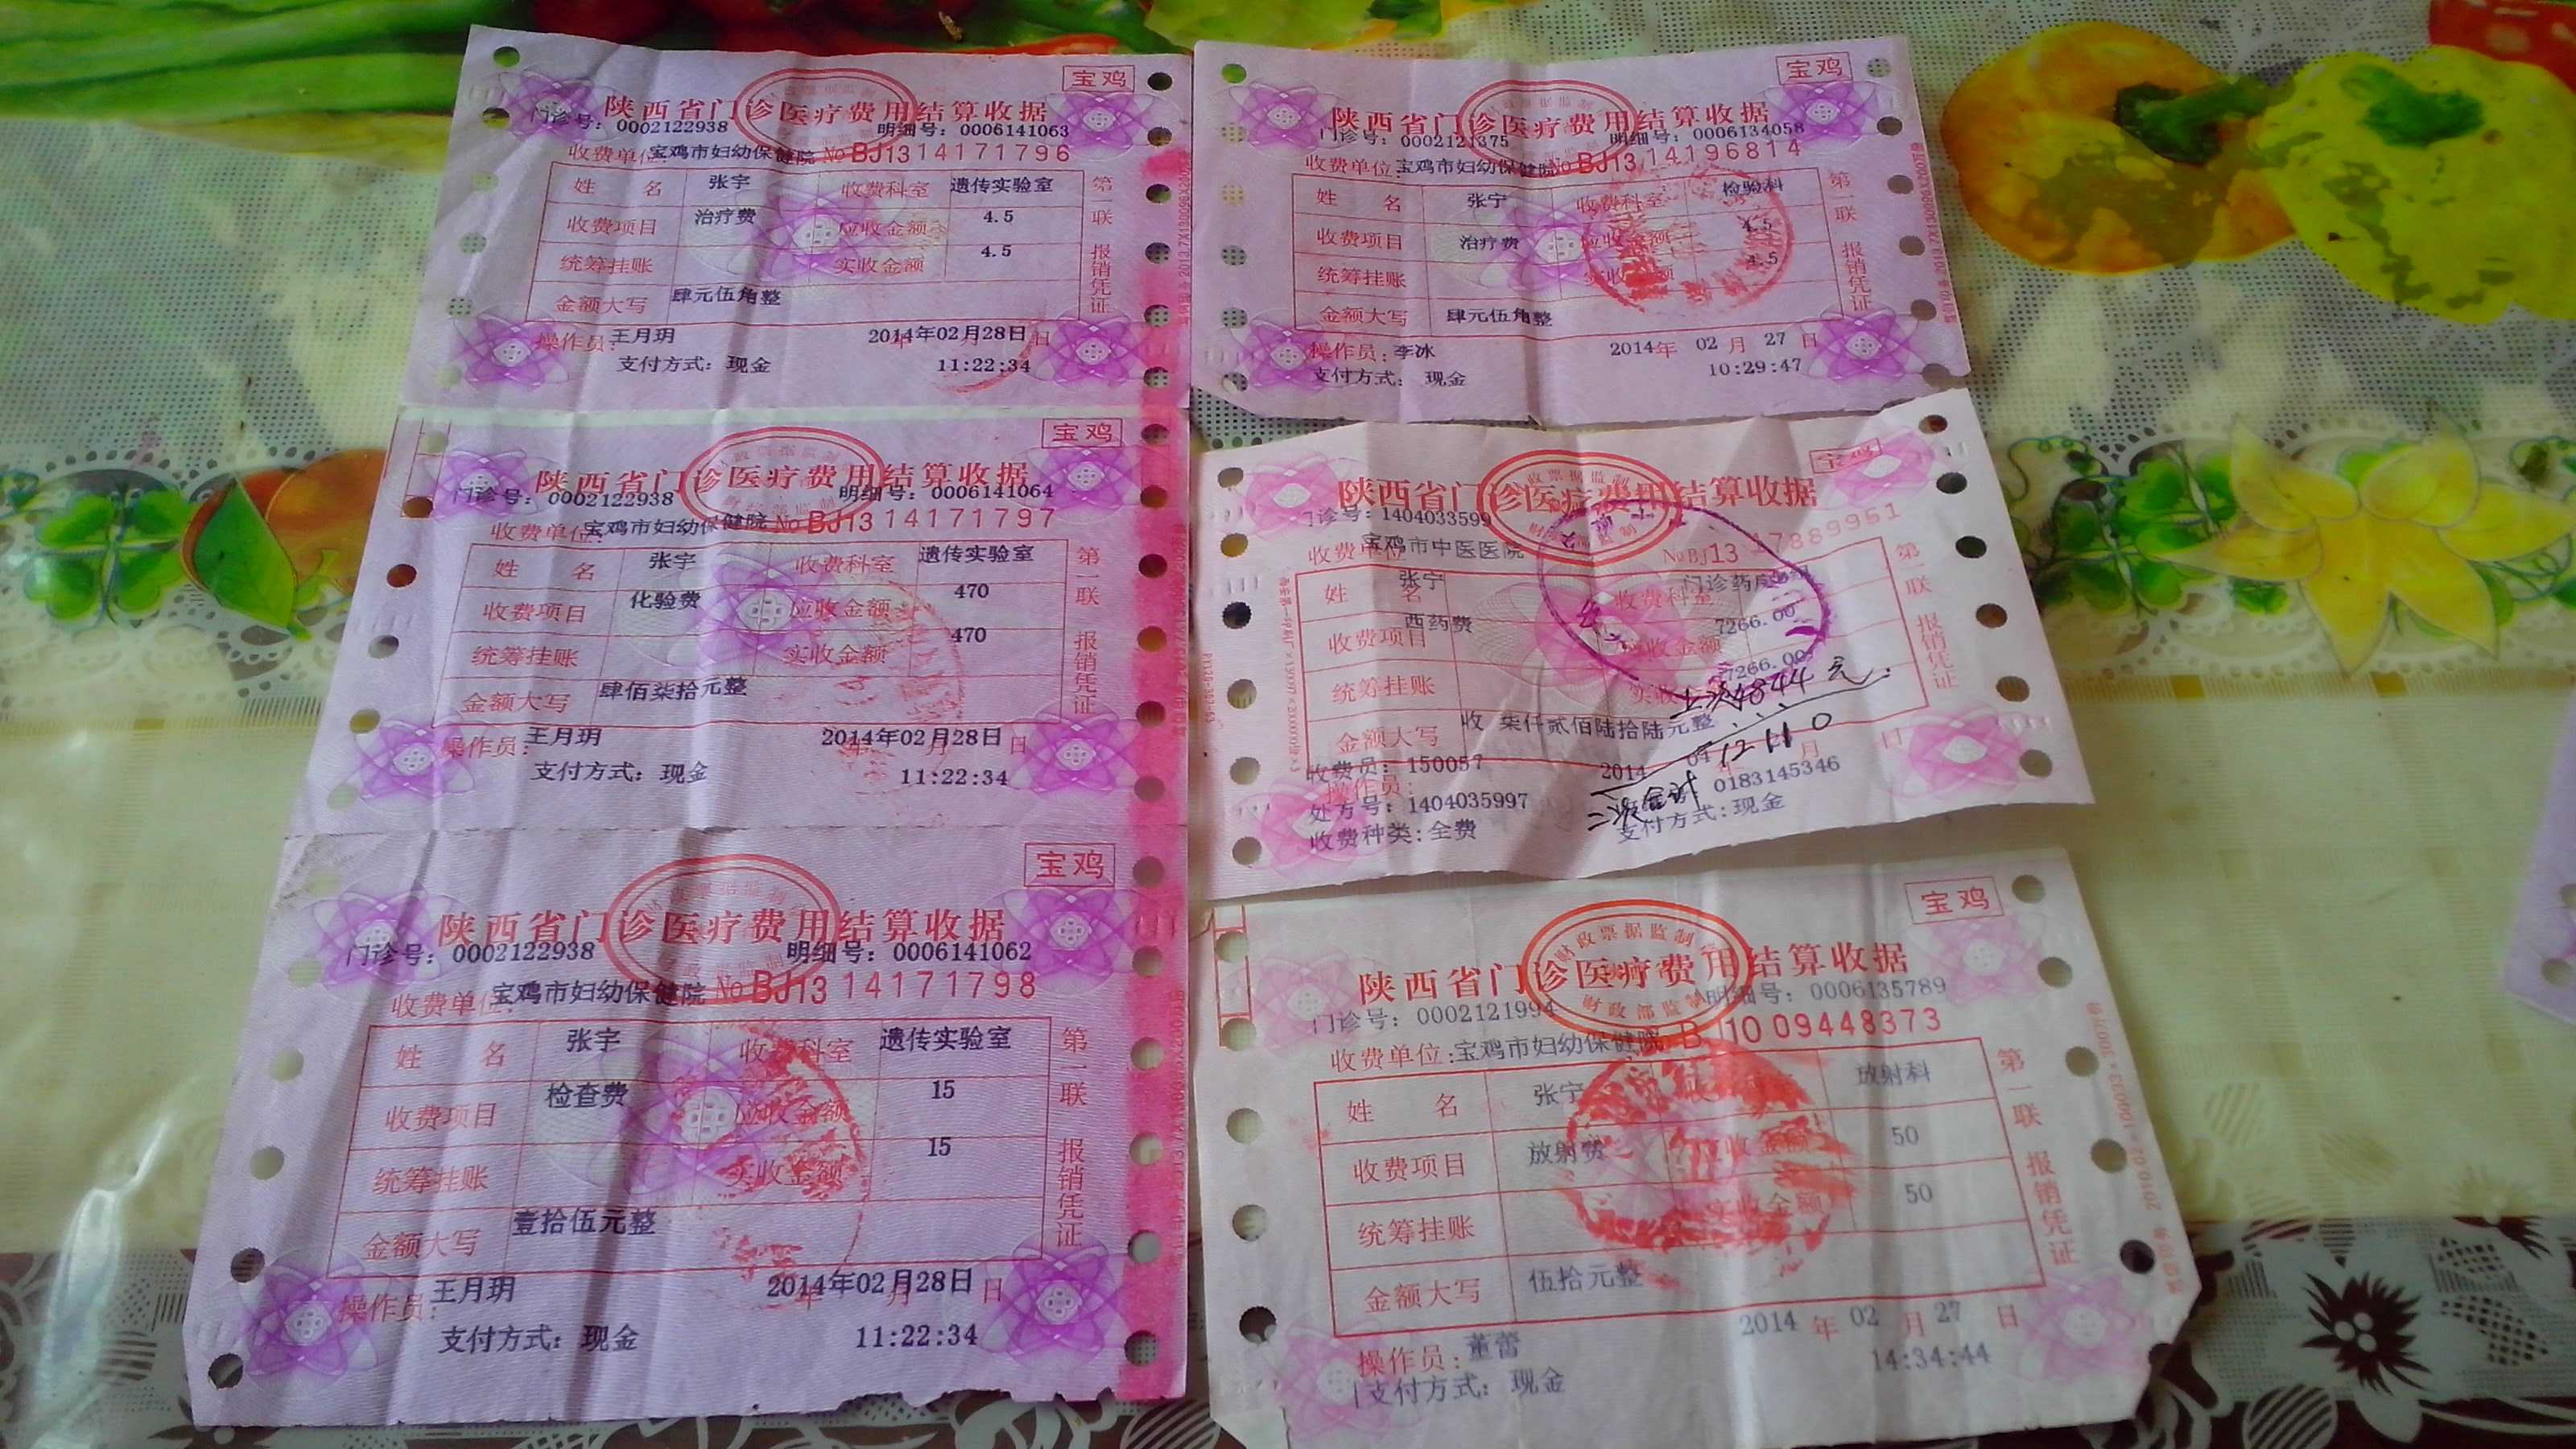 宝鸡
陕西省门诊医疗费用结算收据
门诊号：0002122938 明细号：0006141063
收费单位：宝鸡市妇幼保健院 No BJ13 14171796
姓 名 张宇 收费科室 遗传实验室
收费项目 治疗费 应收金额 4.5
统筹挂账 实收金额 4.5
金额大写 肆元伍角整
操作员：王月玥 2014年02月28日
支付方式：现金 11:22:34
第一联 报销凭证
宝鸡
陕西省门诊医疗费用结算收据
门诊号：0002122938 明细号：0006141064
收费单位：宝鸡市妇幼保健院 No BJ13 14171797
姓 名 张宇 收费科室 遗传实验室
收费项目 化验费 应收金额 470
统筹挂账 实收金额 470
金额大写 肆佰柒拾元整
操作员：王月玥 2014年02月28日
支付方式：现金 11:22:34
第一联 报销凭证
宝鸡
陕西省门诊医疗费用结算收据
门诊号：0002122938 明细号：0006141062
收费单位：宝鸡市妇幼保健院 No BJ13 14171798
姓 名 张宇 收费科室 遗传实验室
收费项目 检查费 应收金额 15
统筹挂账 实收金额 15
金额大写 壹拾伍元整
操作员：王月玥 2014年02月28日
支付方式：现金 11:22:34
第一联 报销凭证
宝鸡
陕西省门诊医疗费用结算收据
门诊号：0002121375 明细号：0006134058
收费单位：宝鸡市妇幼保健院 No BJ13 14196814
姓 名 张宁 收费科室 检验科
收费项目 治疗费 应收金额 4.5
统筹挂账 实收金额 4.5
金额大写 肆元伍角整
操作员：李冰 2014年 02 月 27 日
支付方式： 现金 10:29:47
第一联 报销凭证
宝鸡
陕西省门诊医疗费用结算收据
门诊号：1404033599
收费单位 宝鸡市中医医院 No BJ13 17889951
姓 名 张宁 收费科室 门诊药房
收费项目 西药费 应收金额 7266.00
统筹挂账 实收 7266.00
上次4844元.
金额大写 收 柒仟贰佰陆拾陆元整
12110
收费员：150057 2014 04 月 日
操作员： 0183145346
处方号：1404035997 二次合计
收费种类：全费 支付方式：现金
第一联 报销凭证
宝鸡
陕西省门诊医疗费用结算收据
财政票据监制
财政部监制
门诊号：0002121994 明细号：0006135789
收费单位：宝鸡市妇幼保健院 BJ10 09448373
姓 名 张宁 放射科
收费项目 放射费 应收金额 50
统筹挂账 实收金额 50
金额大写 伍拾元整
操作员：董蕾 2014 年 02 月 27 日
支付方式： 现金 14:34:44
第一联 报销凭证